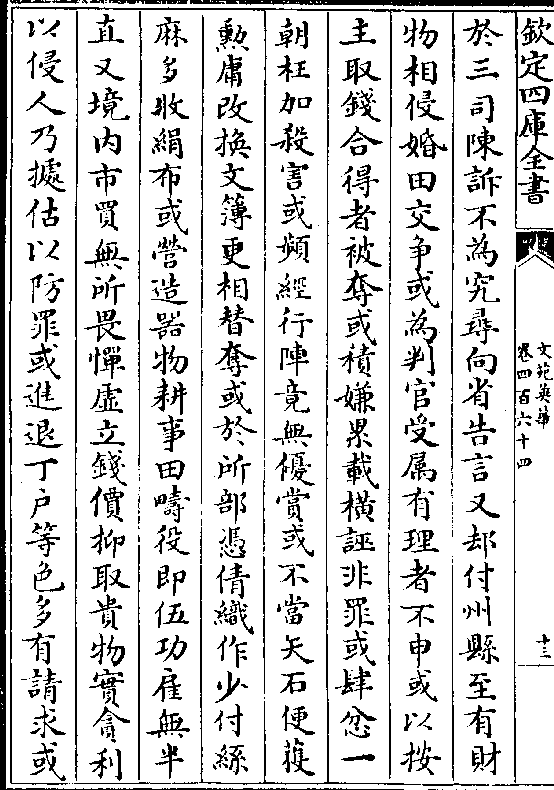 欽定四庫全書
文苑英華
卷四百六十四
十三
於三司陳訴不為究尋向省告言又却付州縣至有財
物相侵婚田交争或為判官受属有理者不申或以按
主取錢合得者被奪或積嫌累載橫誣非罪或肆忿一
朝枉加殺害或頻經行陣竟無優賞或不當矢石便獲
勲庸改換文簿更相替奪或於所部憑倩織作少付絲
麻多收絹布或營造器物耕事田疇役即伍功雇無半
直又境内市買無所畏憚虚立錢價抑取貴物實貪利
以侵人乃據估以防罪或進退丁户等色多有請求或